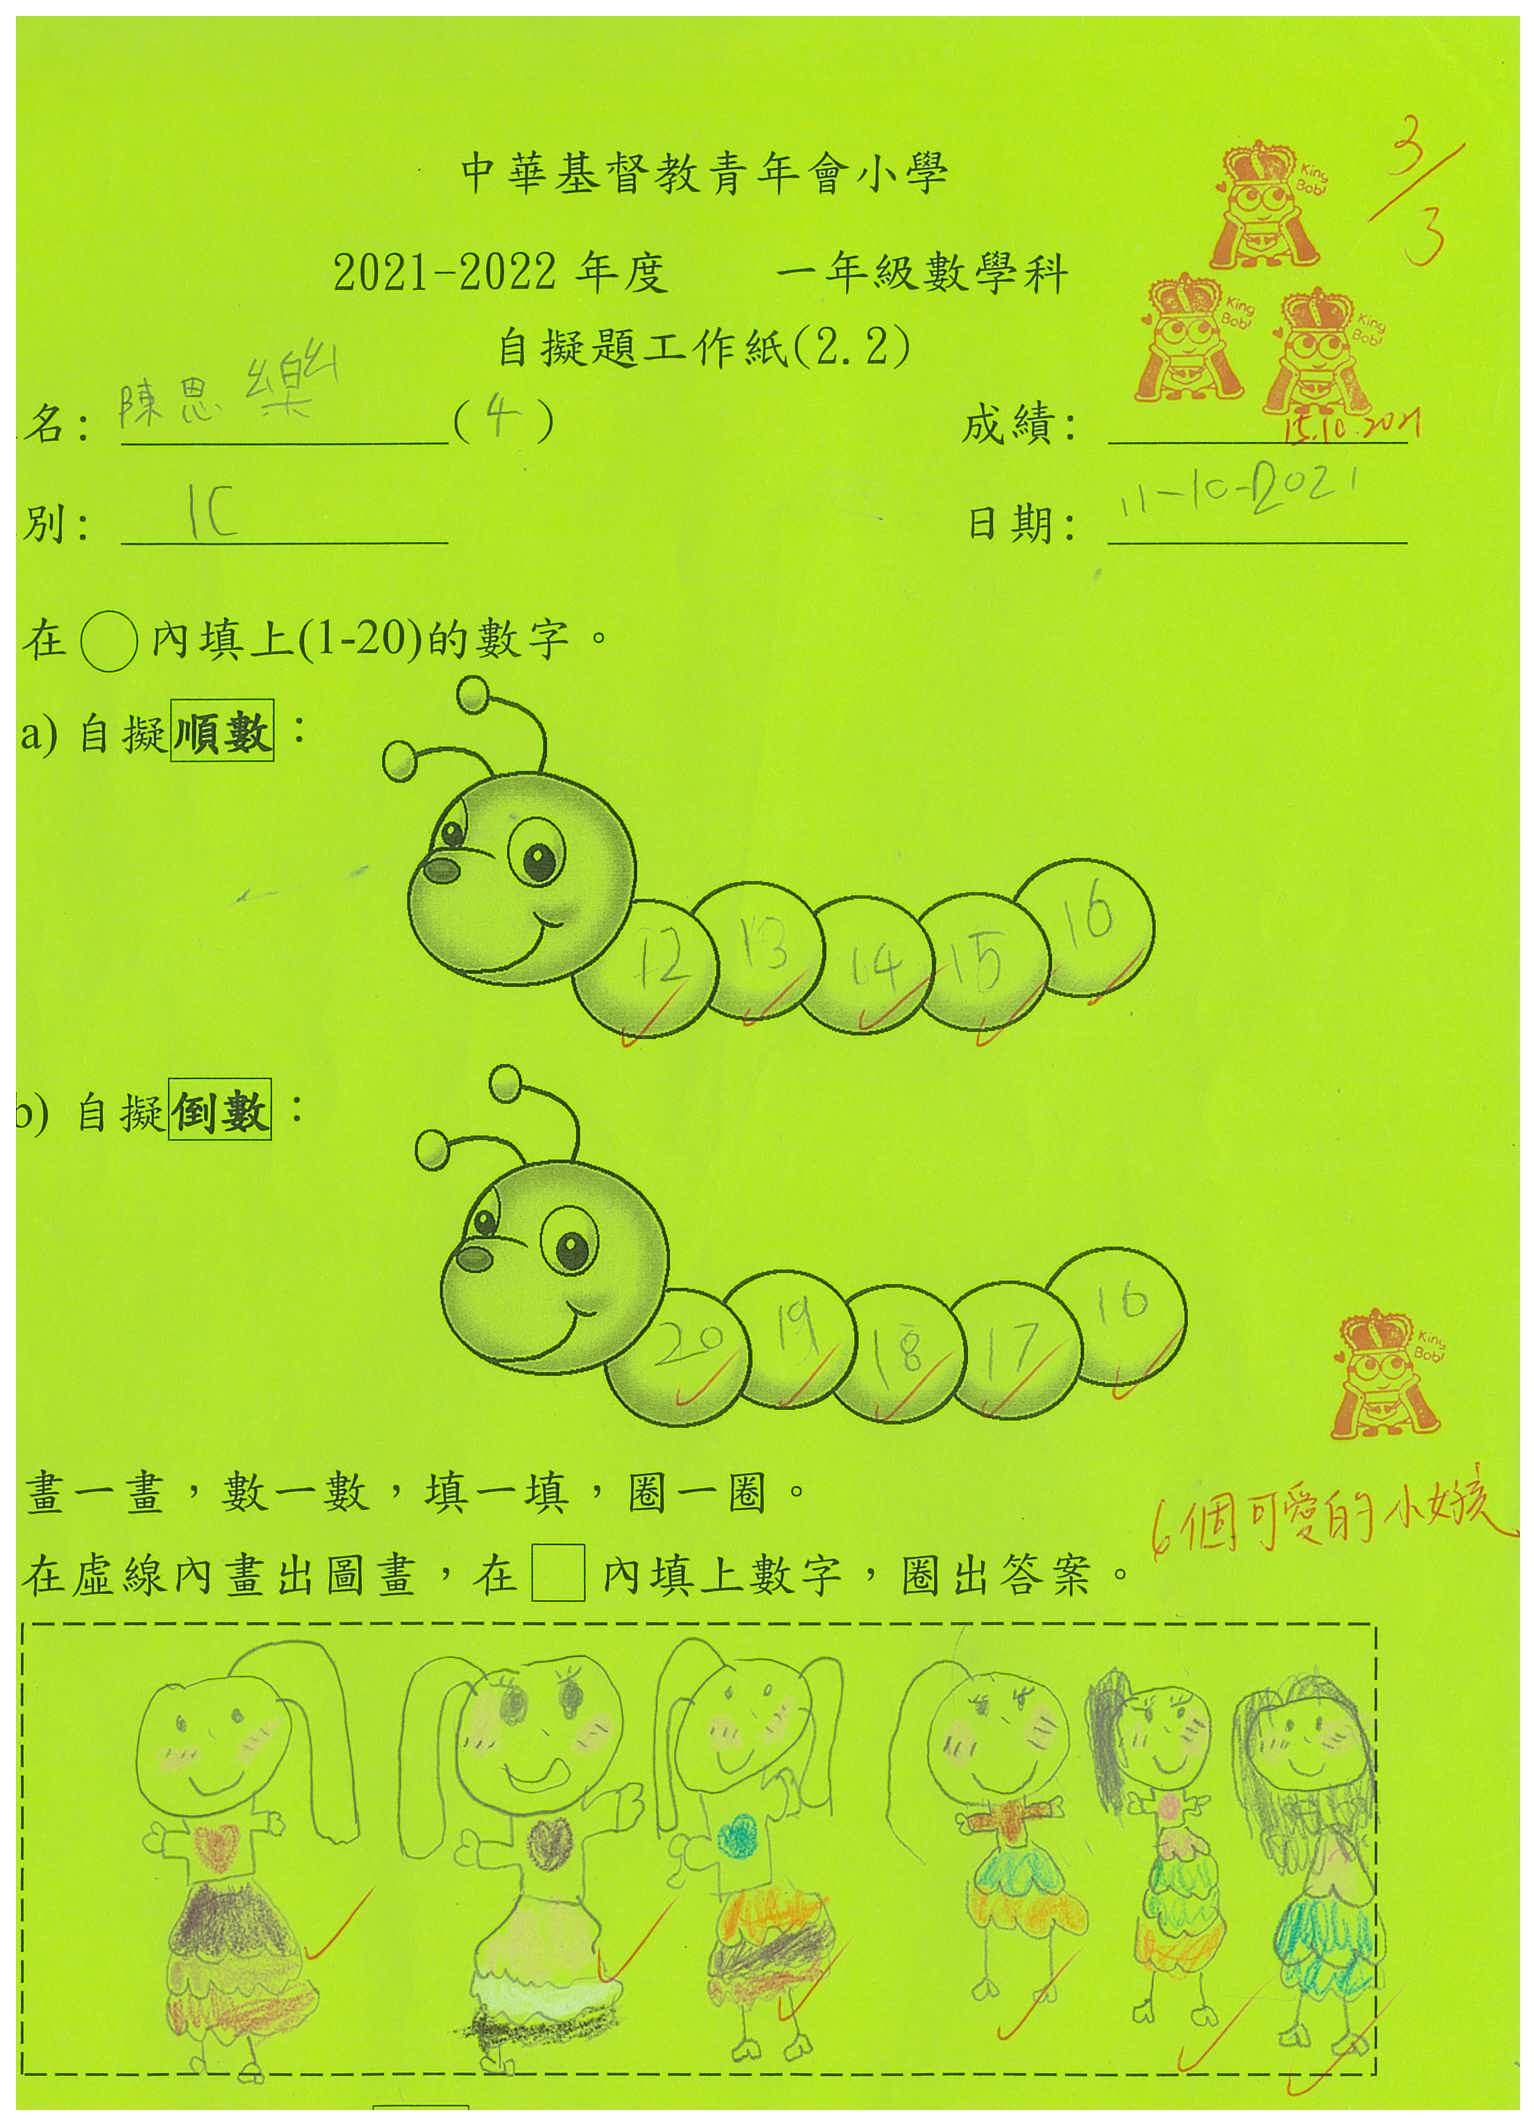 中華基督教青年會小學
3/3
King Bob!
2021-2022 年度 一年級數學科
King Bob!
King Bob!
自擬題工作紙(2.2)
名: 陳思樂 (4) 成績: 15.10.2021
別: 1C 日期: 11-10-2021
在○內填上(1-20)的數字。
a) 自擬順數：
12 13 14 15 16
b) 自擬倒數：
20 19 18 17 16
King Bob!
畫一畫，數一數，填一填，圈一圈。
6個可愛的小女孩
在虛線內畫出圖畫，在□內填上數字，圈出答案。